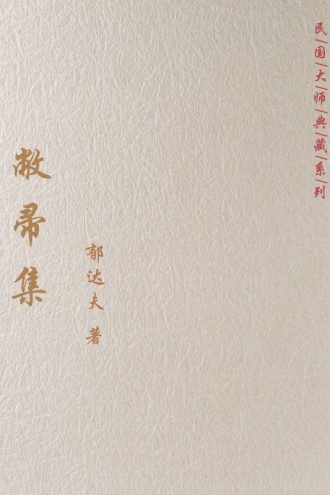 民国大师典藏系列
敝帚集
郁达夫 著